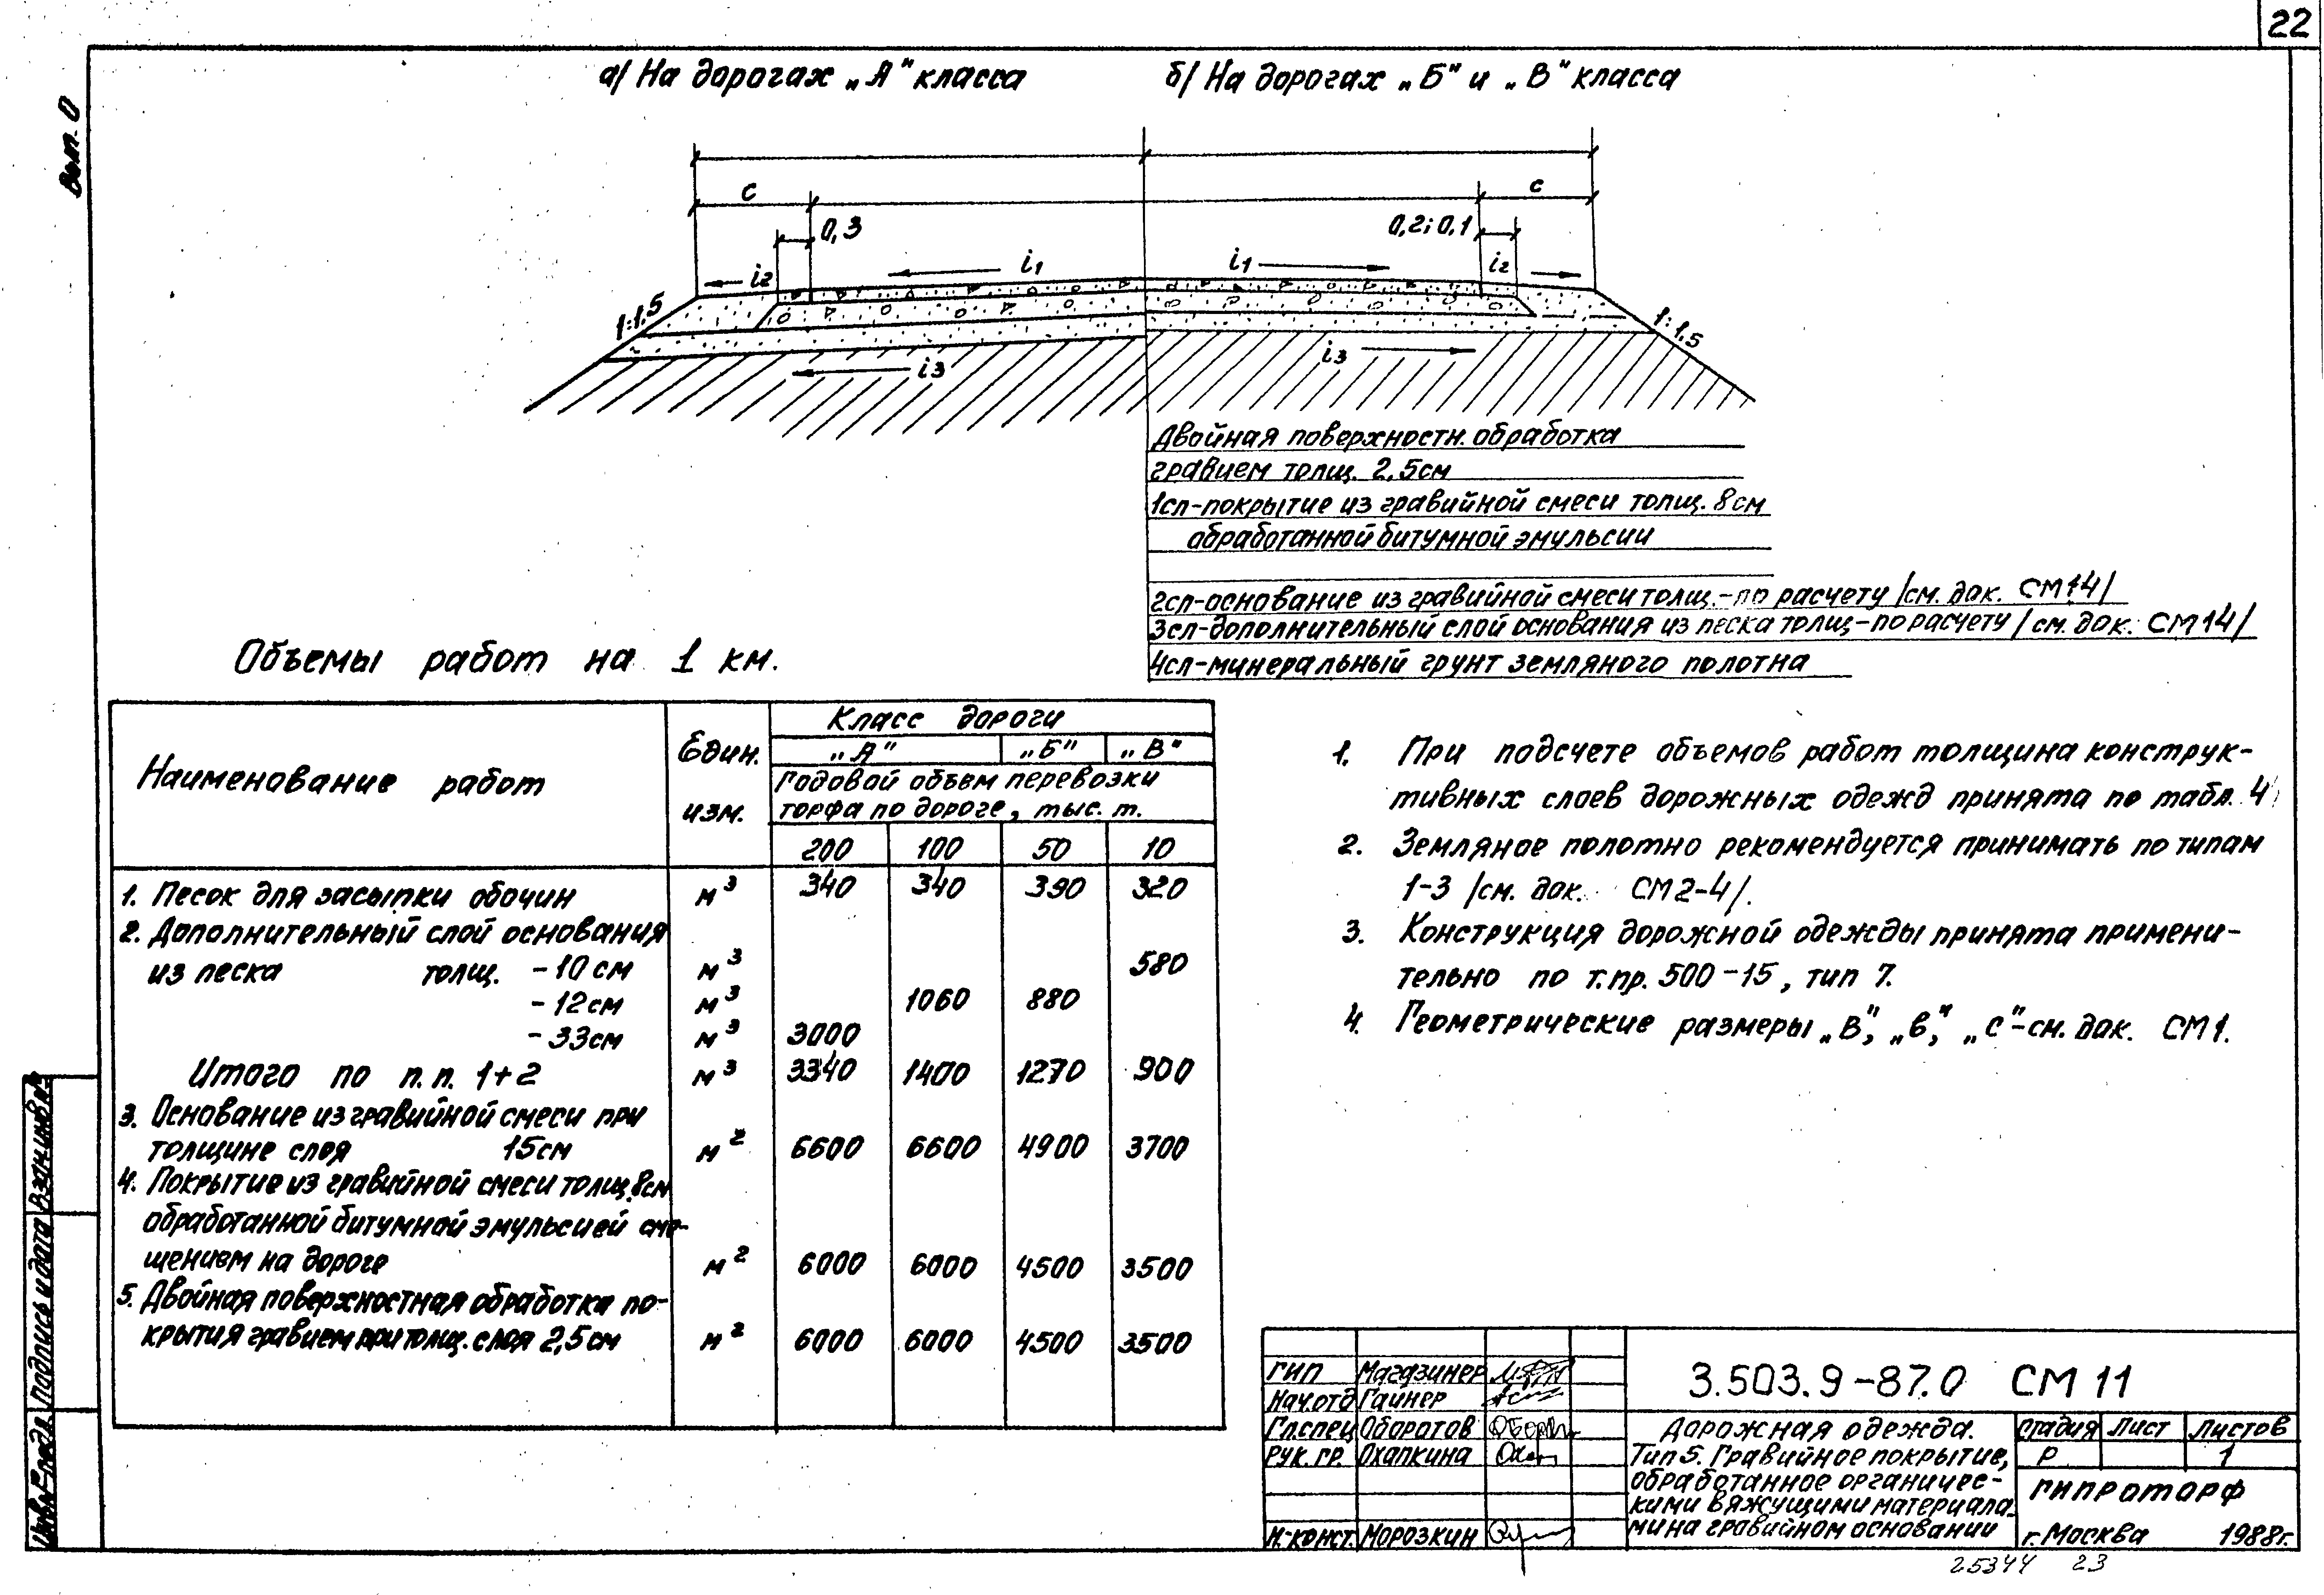 22
Вып. 0
а/ На дорогах „А" класса
б/ На дорогах „Б" и „В" класса
с
с
0,3
0,2; 0,1
i2
i1
i1
i2
1:1,5
1:1,5
i3
i3
Двойная поверхностн. обработка
гравием толщ. 2,5см
1сл-покрытие из гравийной смеси толщ. 8см
обработанной битумной эмульсии
2сл-основание из гравийной смеси толщ.-по расчету /см. док. СМ14/
3сл-дополнительный слой основания из песка толщ-по расчету /см. док. СМ14/
4сл-минеральный грунт земляного полотна
Объемы работ на 1 км.
Наименование работ
Един. изм.
Класс дороги
„А" „Б" „В"
Годовой объем перевозки
торфа по дороге, тыс. т.
200 100 50 10
1. Песок для засыпки обочин м³ 340 340 390 320
2. Дополнительный слой основания
из песка толщ. -10см м³ 580
-12см м³ 1060 880
-33см м³ 3000
Итого по п.п. 1+2 м³ 3340 1400 1270 900
3. Основание из гравийной смеси при
толщине слоя 15см м² 6600 6600 4900 3700
4. Покрытие из гравийной смеси толщ. 8см
обработанной битумной эмульсией сме-
шением на дороге м² 6000 6000 4500 3500
5. Двойная поверхностная обработка по-
крытия гравием при толщ. слоя 2,5см м² 6000 6000 4500 3500
1. При подсчете объемов работ толщина конструк-
тивных слоев дорожных одежд принята по табл. 4
2. Земляное полотно рекомендуется принимать по типам
1-3 /см. док. СМ2-4/.
3. Конструкция дорожной одежды принята примени-
тельно по т.пр. 500-15, тип 7.
4. Геометрические размеры „В", „в", „с"-см. док. СМ1.
Инв.№подл. Подпись и дата Взам.инв.№
ГИП Магазинер
Нач.отд Гайнер
Гл.спец Оборотов
Рук. гр. Охапкина
Н.конст. Морозкин
3.503.9-87.0 СМ 11
Дорожная одежда.
Тип 5. Гравийное покрытие,
обработанное органичес-
кими вяжущими материала-
ми на гравийном основании
Стадия Лист Листов
Р 1
ГИПРОТОРФ
г. Москва 1988г.
25344 23